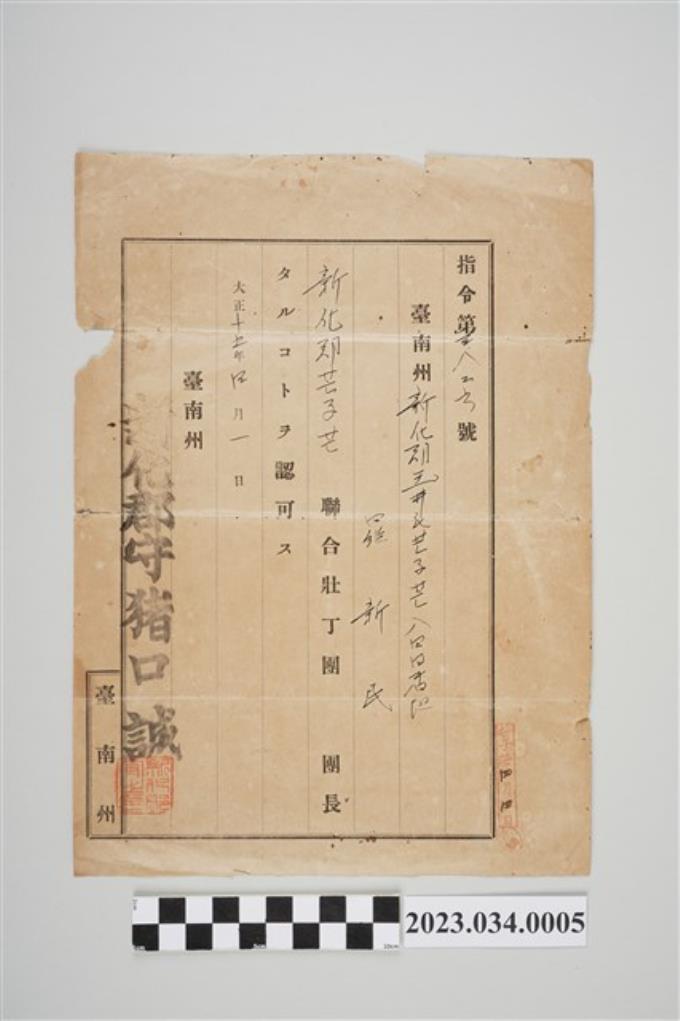 指令第 八 號
臺南州新化郡玉井庄芒子芒
羅新民
新化郡芒子芒 聯合壯丁團 團長
タルコトヲ認可ス
大正十五年四月一日
臺南州
新化郡守猪口誠
臺南州
2023.034.0005